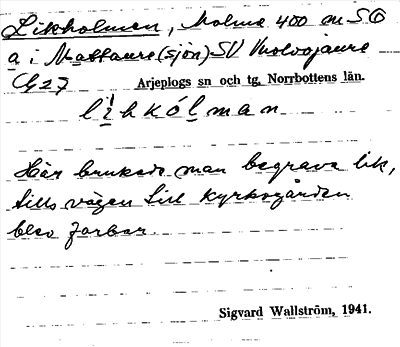 Likholmen, holme 400 m SO
a i Mattaure (sjön) SV Vuolvojaure
Arjeplogs sn och tg, Norrbottens län.
likkólman
Här brukade man begrava lik,
tills vägen till kyrkogården
blev farbar.
Sigvard Wallström, 1941.